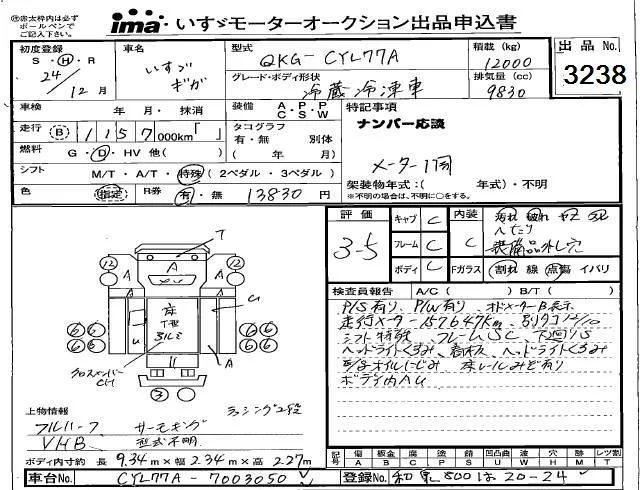 ㊟赤太枠内は必ず
ボールペンで
ご記入下さい。
ima いすゞモーターオークション出品申込書
初度登録 S・H・R 24年 12月
車名 いすゞ ギガ
型式 QKG-CYL77A
グレード・ボディ形状 冷蔵冷凍車
積載(kg) 12000
排気量(cc) 9830
出品No. 3238
車検 年 月・抹消
装備 A・P・P C・S・W
特記事項
ナンバー応談
走行 B 1157 000km「 」
タコグラフ 有・無 別体 ( 年 月)
燃料 G・D・HV 他( )
メーター1回
シフト M/T・A/T・特殊(2ペダル・3ペダル)
架装物年式:( 年式)・不明
※不明の場合は、不明に○をする。
色 指定 R券 有・無 13830円
評価 3-5
キャブ C
フレーム C
ボディ C
内装 C
汚れ 破れ
へたり
装備品外し穴
Fガラス 割れ 線 点傷 イバリ
検査員報告 A/C( ) B/T( )
P/S有り、P/W有り、オドメーターB表示
走行メーター157647km、
シフト特殊、フレームSC、下廻りS
ヘッドライトくるみ
オイルにじみ 床レールみぞ有り
ボディ内AU
T
A
12
12
A
A
A
床
T-3
アルミ
U
U
A
6 6
6 6
6 6
6 6
3
クロスメンバー
CH
上物情報
ラッシング2段
フルハーフ サーモキング
VHB 型式不明
ボディ内寸約 長 9.34m×幅 2.34m×高 2.27m
記号 傷 A 板金 B 腐 C 塗 P 錆 S 凹凸曲 U 波 W 穴 H 跡 M レツ割 T
車台No. CYL77A-7003050
登録No. 和泉800は20-24